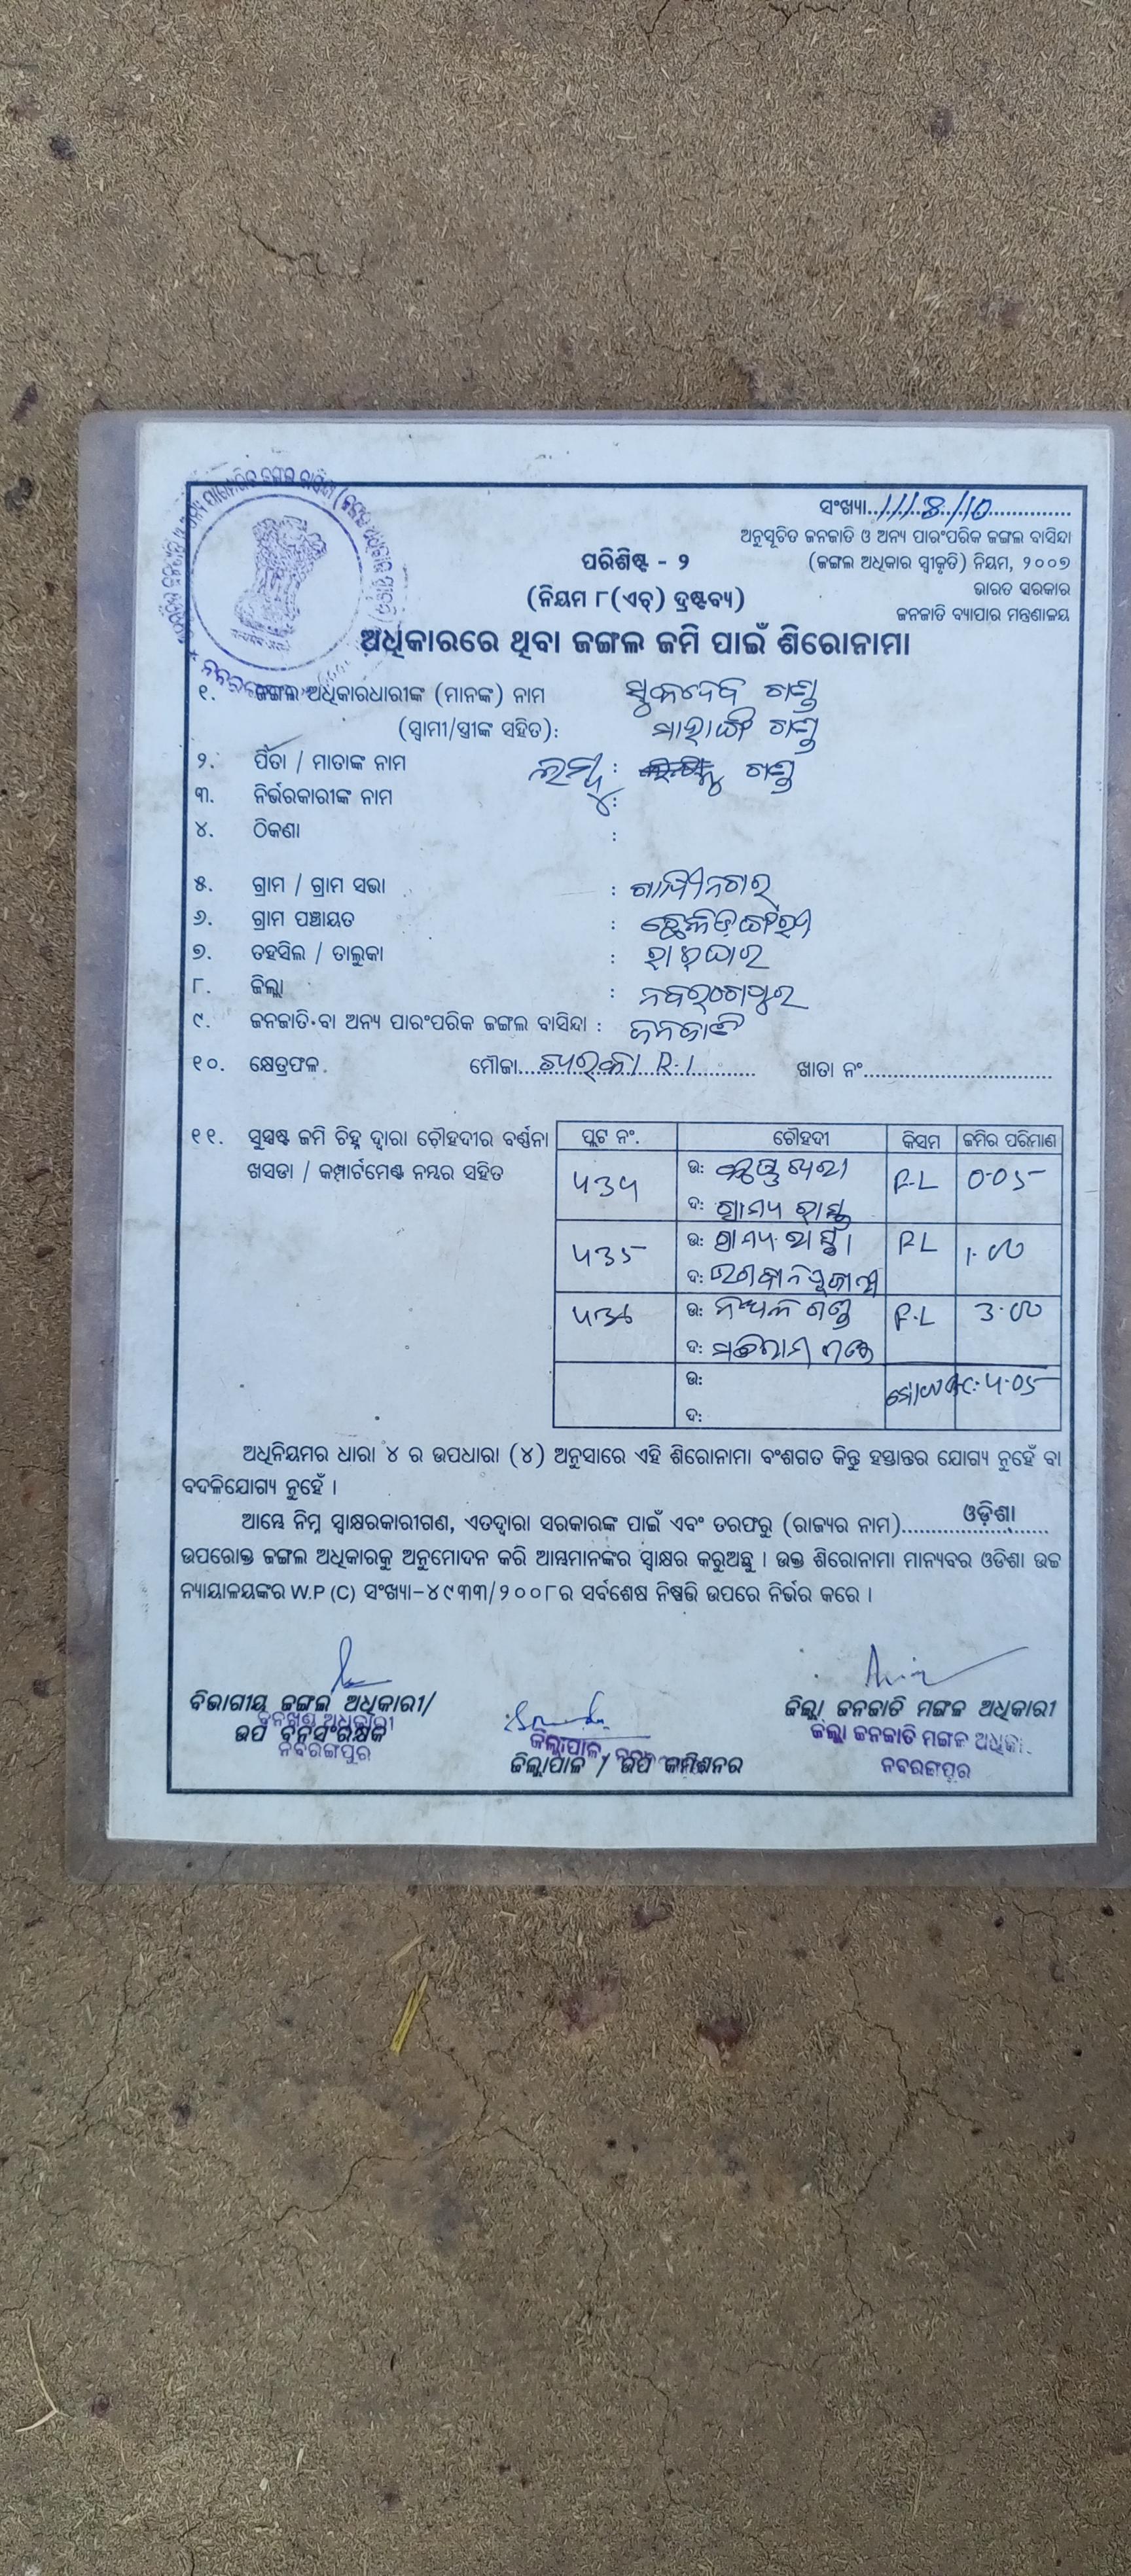 ସଂଖ୍ୟା.111८/10
ଅନୁସୂଚିତ ଜନଜାତି ଓ ଅନ୍ୟ ପାରଂପରିକ ଜଙ୍ଗଲ ବାସିନ୍ଦା
(ଜଙ୍ଗଲ ଅଧିକାର ସ୍ୱୀକୃତି) ନିୟମ, ୨୦୦୭
ଭାରତ ସରକାର
ଜନଜାତି ବ୍ୟାପାର ମନ୍ତ୍ରଣାଳୟ
ପରିଶିଷ୍ଟ - ୨
(ନିୟମ ୮(ଏଚ୍) ଦ୍ରଷ୍ଟବ୍ୟ)
ଅଧିକାରରେ ଥିବା ଜଙ୍ଗଲ ଜମି ପାଇଁ ଶିରୋନାମା
୧. ଜଙ୍ଗଲ ଅଧିକାରଧାରୀଙ୍କ (ମାନଙ୍କ) ନାମ ସୁକଦେବ ଗଣ୍ଡ
(ସ୍ୱାମୀ/ସ୍ତ୍ରୀଙ୍କ ସହିତ): ଗଣ୍ଡ
୨. ପିତା / ମାତାଙ୍କ ନାମ : ଗଣ୍ଡ
୩. ନିର୍ଭରକାରୀଙ୍କ ନାମ :
୪. ଠିକଣା :
୫. ଗ୍ରାମ / ଗ୍ରାମ ସଭା : ଗାନ୍ଧୀନଗର
୬. ଗ୍ରାମ ପଞ୍ଚାୟତ :
୭. ତହସିଲ / ତାଲୁକା : ରାଇଘର
୮. ଜିଲ୍ଲା : ନବରଙ୍ଗପୁର
୯. ଜନଜାତି ବା ଅନ୍ୟ ପାରଂପରିକ ଜଙ୍ଗଲ ବାସିନ୍ଦା : ଜନଜାତି
୧୦. କ୍ଷେତ୍ରଫଳ ମୌଜା... R.I ଖାତା ନଂ...
୧୧. ସୁସ୍ପଷ୍ଟ ଜମି ଚିହ୍ନ ଦ୍ୱାରା ଚୌହଦୀର ବର୍ଣ୍ଣନା
ଖସଡା / କମ୍ପାର୍ଟମେଣ୍ଟ ନମ୍ବର ସହିତ
ପ୍ଲଟ ନଂ. ଚୌହଦୀ କିସମ ଜମିର ପରିମାଣ
ଉ: F.L 0.05
ଦ: ଗ୍ରାମ୍ୟ ରାସ୍ତା
ଉ: ଗ୍ରାମ୍ୟ ରାସ୍ତା F.L
ଦ:
ଉ: ଗଣ୍ଡ F.L
ଦ: ଗଣ୍ଡ
ଉ:
ଦ:
ଅଧିନିୟମର ଧାରା ୪ ର ଉପଧାରା (୪) ଅନୁସାରେ ଏହି ଶିରୋନାମା ବଂଶଗତ କିନ୍ତୁ ହସ୍ତାନ୍ତର ଯୋଗ୍ୟ ନୁହେଁ ବା
ବଦଳିଯୋଗ୍ୟ ନୁହେଁ ।
ଆମ୍ଭେ ନିମ୍ନ ସ୍ୱାକ୍ଷରକାରୀଗଣ, ଏତଦ୍ୱାରା ସରକାରଙ୍କ ପାଇଁ ଏବଂ ତରଫରୁ (ରାଜ୍ୟର ନାମ)...ଓଡ଼ିଶା...
ଉପରୋକ୍ତ ଜଙ୍ଗଲ ଅଧିକାରକୁ ଅନୁମୋଦନ କରି ଆମ୍ଭମାନଙ୍କର ସ୍ୱାକ୍ଷର କରୁଅଛୁ । ଉକ୍ତ ଶିରୋନାମା ମାନ୍ୟବର ଓଡିଶା ଉଚ୍ଚ
ନ୍ୟାୟାଳୟଙ୍କର W.P (C) ସଂଖ୍ୟା-୪୯୩୩/୨୦୦୮ର ସର୍ବଶେଷ ନିଷ୍ପତ୍ତି ଉପରେ ନିର୍ଭର କରେ ।
ବିଭାଗୀୟ ଜଙ୍ଗଲ ଅଧିକାରୀ/
ଉପ ବନସଂରକ୍ଷକ
ବନଖଣ୍ଡ ଅଧିକାରୀ
ନବରଙ୍ଗପୁର
ଜିଲ୍ଲାପାଳ,
ଜିଲ୍ଲାପାଳ / ଉପ କମିଶନର
ଜିଲ୍ଲା ଜନଜାତି ମଙ୍ଗଳ ଅଧିକାରୀ
ଜିଲ୍ଲା ଜନଜାତି ମଙ୍ଗଳ
ନବରଙ୍ଗପୁର